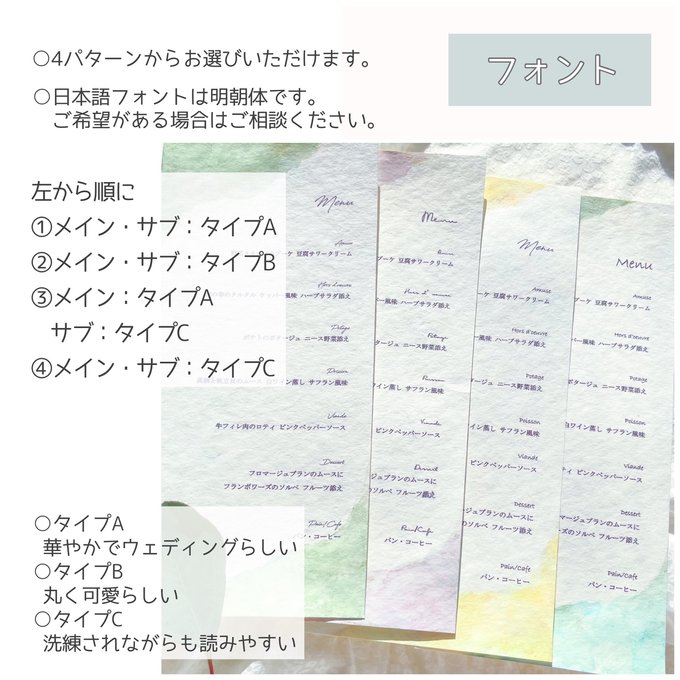 ○4パターンからお選びいただけます。
フォント
○日本語フォントは明朝体です。
ご希望がある場合はご相談ください。
左から順に
①メイン・サブ：タイプA
②メイン・サブ：タイプB
③メイン：タイプA
サブ：タイプC
④メイン・サブ：タイプC
Menu
Hors d'œuvre
ポテトのポタージュ ニース野菜添え
Poisson
白ワイン蒸し サフラン風味
Viande
牛フィレ肉のロティ ピンクペッパーソース
Dessert
フロマージュブランのムースに
フランボワーズのソルベ フルーツ添え
Pain/Cafe
パン・コーヒー
Menu
ブーケ 豆腐サワークリーム
風味 ハーブサラダ添え
Potage
ージュ ニース野菜添え
Poisson
イン蒸し サフラン風味
Viande
ピンクペッパーソース
Dessert
ジュブランのムースに
のソルベ フルーツ添え
Pain/Cafe
パン・コーヒー
Menu
Amuse
ブーケ 豆腐サワークリーム
Hors d'oeuvre
ー風味 ハーブサラダ添え
Potage
ージュ ニース野菜添え
Poisson
ワイン蒸し サフラン風味
Viande
ピンクペッパーソース
Dessert
ージュブランのムースに
のソルベ フルーツ添え
Pain/Cafe
パン・コーヒー
Menu
Amuse
ブーケ 豆腐サワークリーム
Hors d'oeuvre
パー風味 ハーブサラダ添え
Potage
ポタージュ ニース野菜添え
Poisson
白ワイン蒸し サフラン風味
Viande
ティ ピンクペッパーソース
Dessert
マージュブランのムースに
ズのソルベ フルーツ添え
Pain/Cafe
パン・コーヒー
○タイプA
華やかでウェディングらしい
○タイプB
丸く可愛らしい
○タイプC
洗練されながらも読みやすい